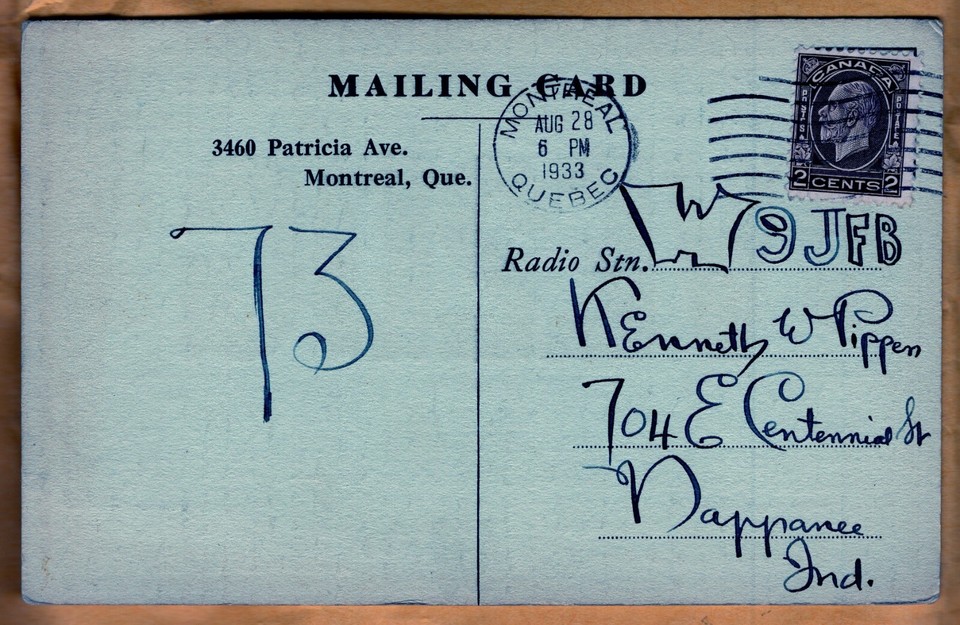 MAILING CARD
3460 Patricia Ave.
Montreal, Que.
73
MONTREAL
AUG 28
6 PM
1933
QUEBEC
CANADA
POSTES
POSTAGE
2 CENTS 2
Radio Stn. W9JFB
Kenneth W Pippen
704 E Centennial St
Nappanee
Ind.